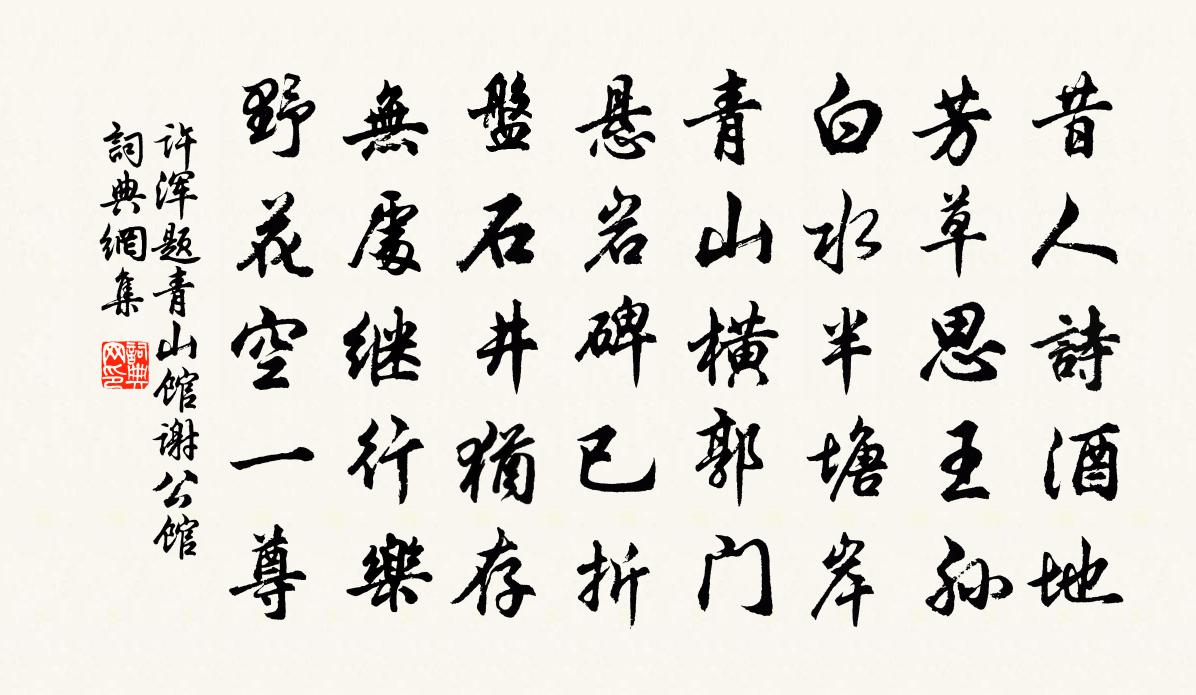 昔人詩酒地
芳草思王孙
白水半塘岸
青山横郭门
悬岩碑已折
盤石井猶存
無處继行樂
野花空一尊
许浑题青山馆谢公馆
詞典網集
詞典
网印